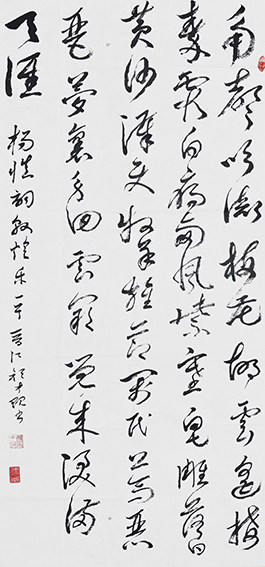 角聲吹徹梅花胡雲遙接
秦霞白雁西風紫塞皂雕落日
黃沙漢使牧羊旌節閼氏上馬琵
琶夢裏身回雲闕覺來淚滿
天涯
楊慎詞敦煌樂一章 晉江